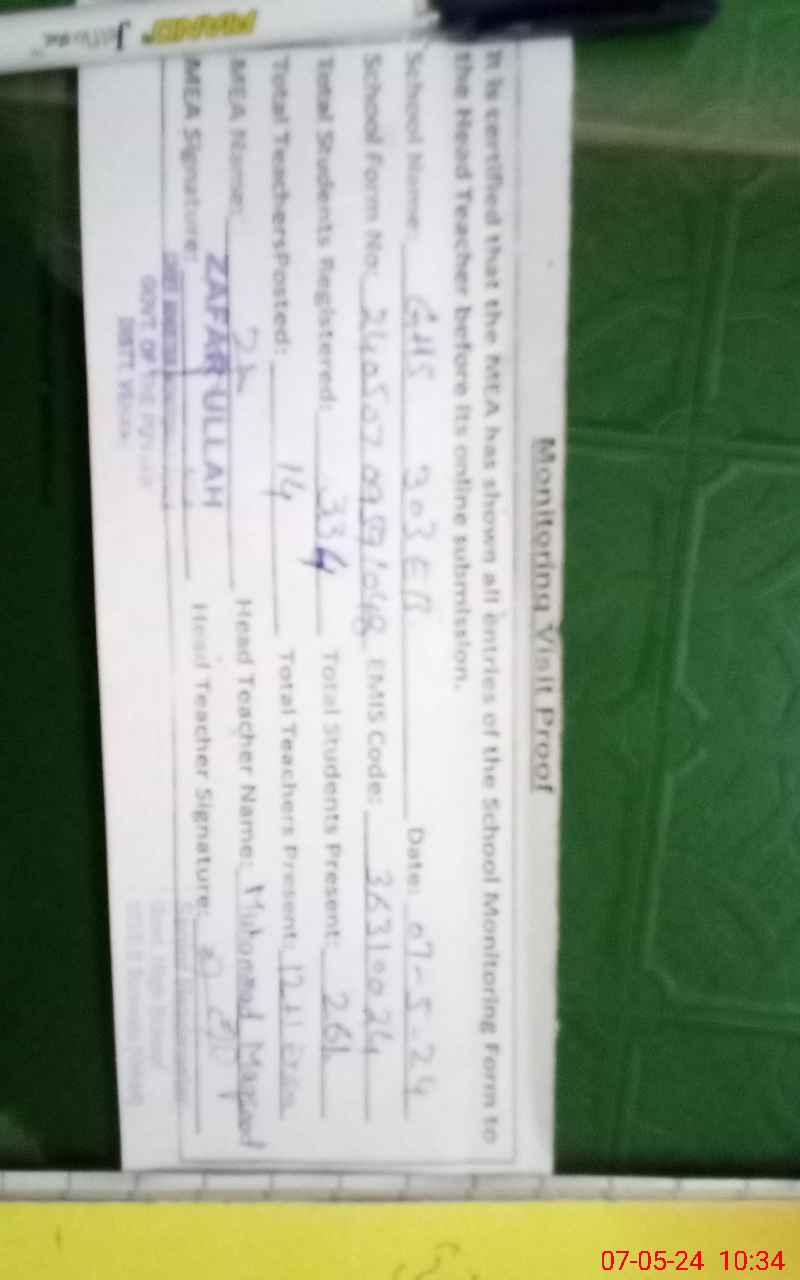 Monitoring Visit Proof
It is certified that the MEA has shown all entries of the School Monitoring Form to
the Head Teacher before its online submission.
School Name: GHS 303 EB Date: 07-5-24
School Form No: EMIS Code: 36310024
Total Students Registered: 334 Total Students Present: 261
Total TeachersPosted: 14 Total Teachers Present: 12+1
MEA Name: ZAFAR ULLAH Head Teacher Name: Muhammad Maqsood
MEA Signature: Head Teacher Signature:
GOVT. OF THE PUNJAB
DISTT. VEHARI
PIANO
07-05-24 10:34